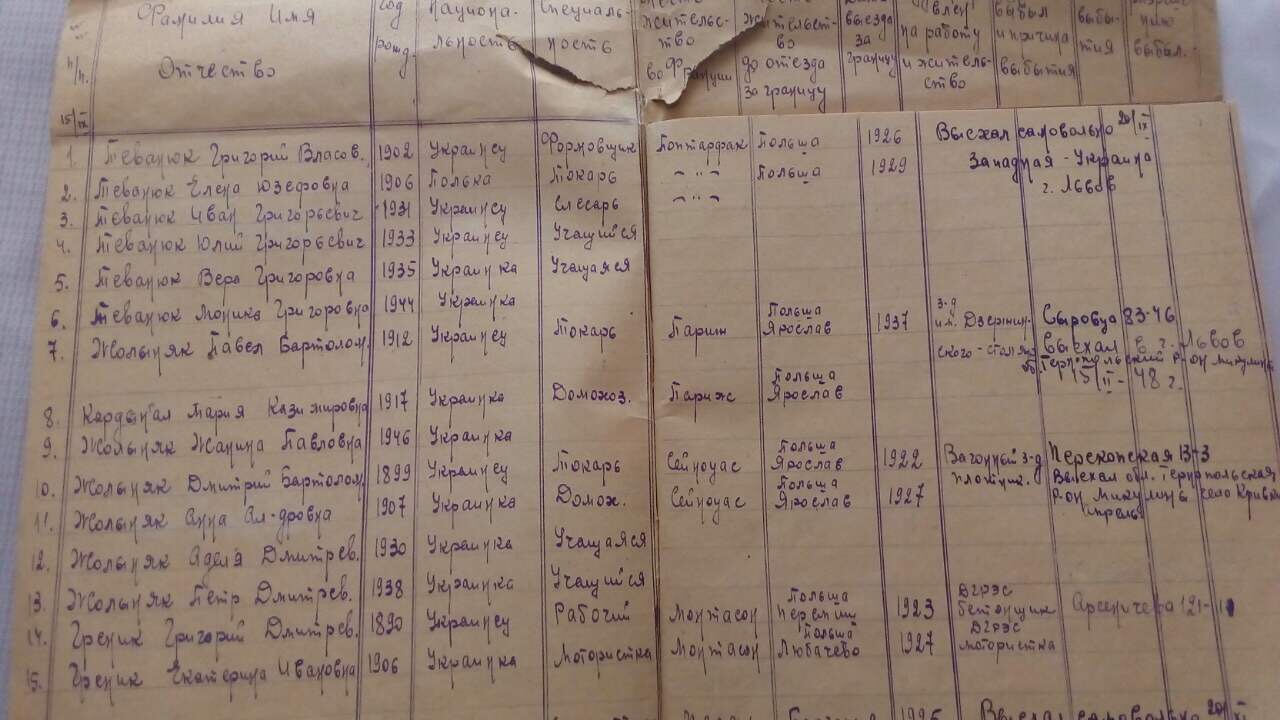 п/п. Фамилия Имя Отчество | Год рожд. | Национальность | Специальность | жительство во Франции | жительство до отезда за границу | выезда за границу | на работу и жительство | выбыл и причина выбытия | выбытия | выбыл.
15/IX
1. Теванюк Григорий Власов. 1902 Украинец Формовщик Понтарфак Польша 1926 Выехал самовольно 20/IX
Западная - Украина
2. Теванюк Елена Юзефовна 1906 Полька Токарь — " — Польша 1929 г. Львов
3. Теванюк Иван Григорьевич 1931 Украинец Слесарь — " —
4. Теванюк Юлий Григорьевич 1933 Украинец Учащийся
5. Теванюк Вера Григоровна 1935 Украинка Учащаяся
6. Теванюк Моника Григоровна 1944 Украинка
7. Жолыняк Павел Бартолом. 1912 Украинец Токарь Париж Польша Ярослав 1937 з-д им. Дзержинского-столяр Сыровца 83-46
выехал в г. Львов
Тернопольский р-он Микулинц
15/II - 48 г.
8. Кардынал Мария Казимировна 1917 Украинка Домохоз. Париж Польша Ярослав
9. Жолыняк Жанина Павловна 1946 Украинка
10. Жолыняк Дмитрий Бартолом. 1899 Украинец Токарь Сейноуас Польша Ярослав 1922 Вагонный з-д плотник. Перекопская 13-3
Выехал обл. Тернопольская
11. Жолыняк Анна Ал-дровна 1907 Украинка Домох. Сейноуас Польша Ярослав 1927 р-он Микулинц село Кривк
апрель
12. Жолыняк Аделя Дмитрев. 1930 Украинка Учащаяся
13. Жолыняк Петр Дмитрев. 1938 Украинка Учащийся
14. Греник Григорий Дмитрев. 1890 Украинец Рабочий Монтасон Польша Перемиш 1923 ДГРЭС бетонщик Арсеничева 121-
15. Греник Екатерина Ивановна 1906 Украинка Мотористка Монтасон Польша Любачево 1927 ДГРЭС мотористка
1925 Выехал самовольно 20/IX